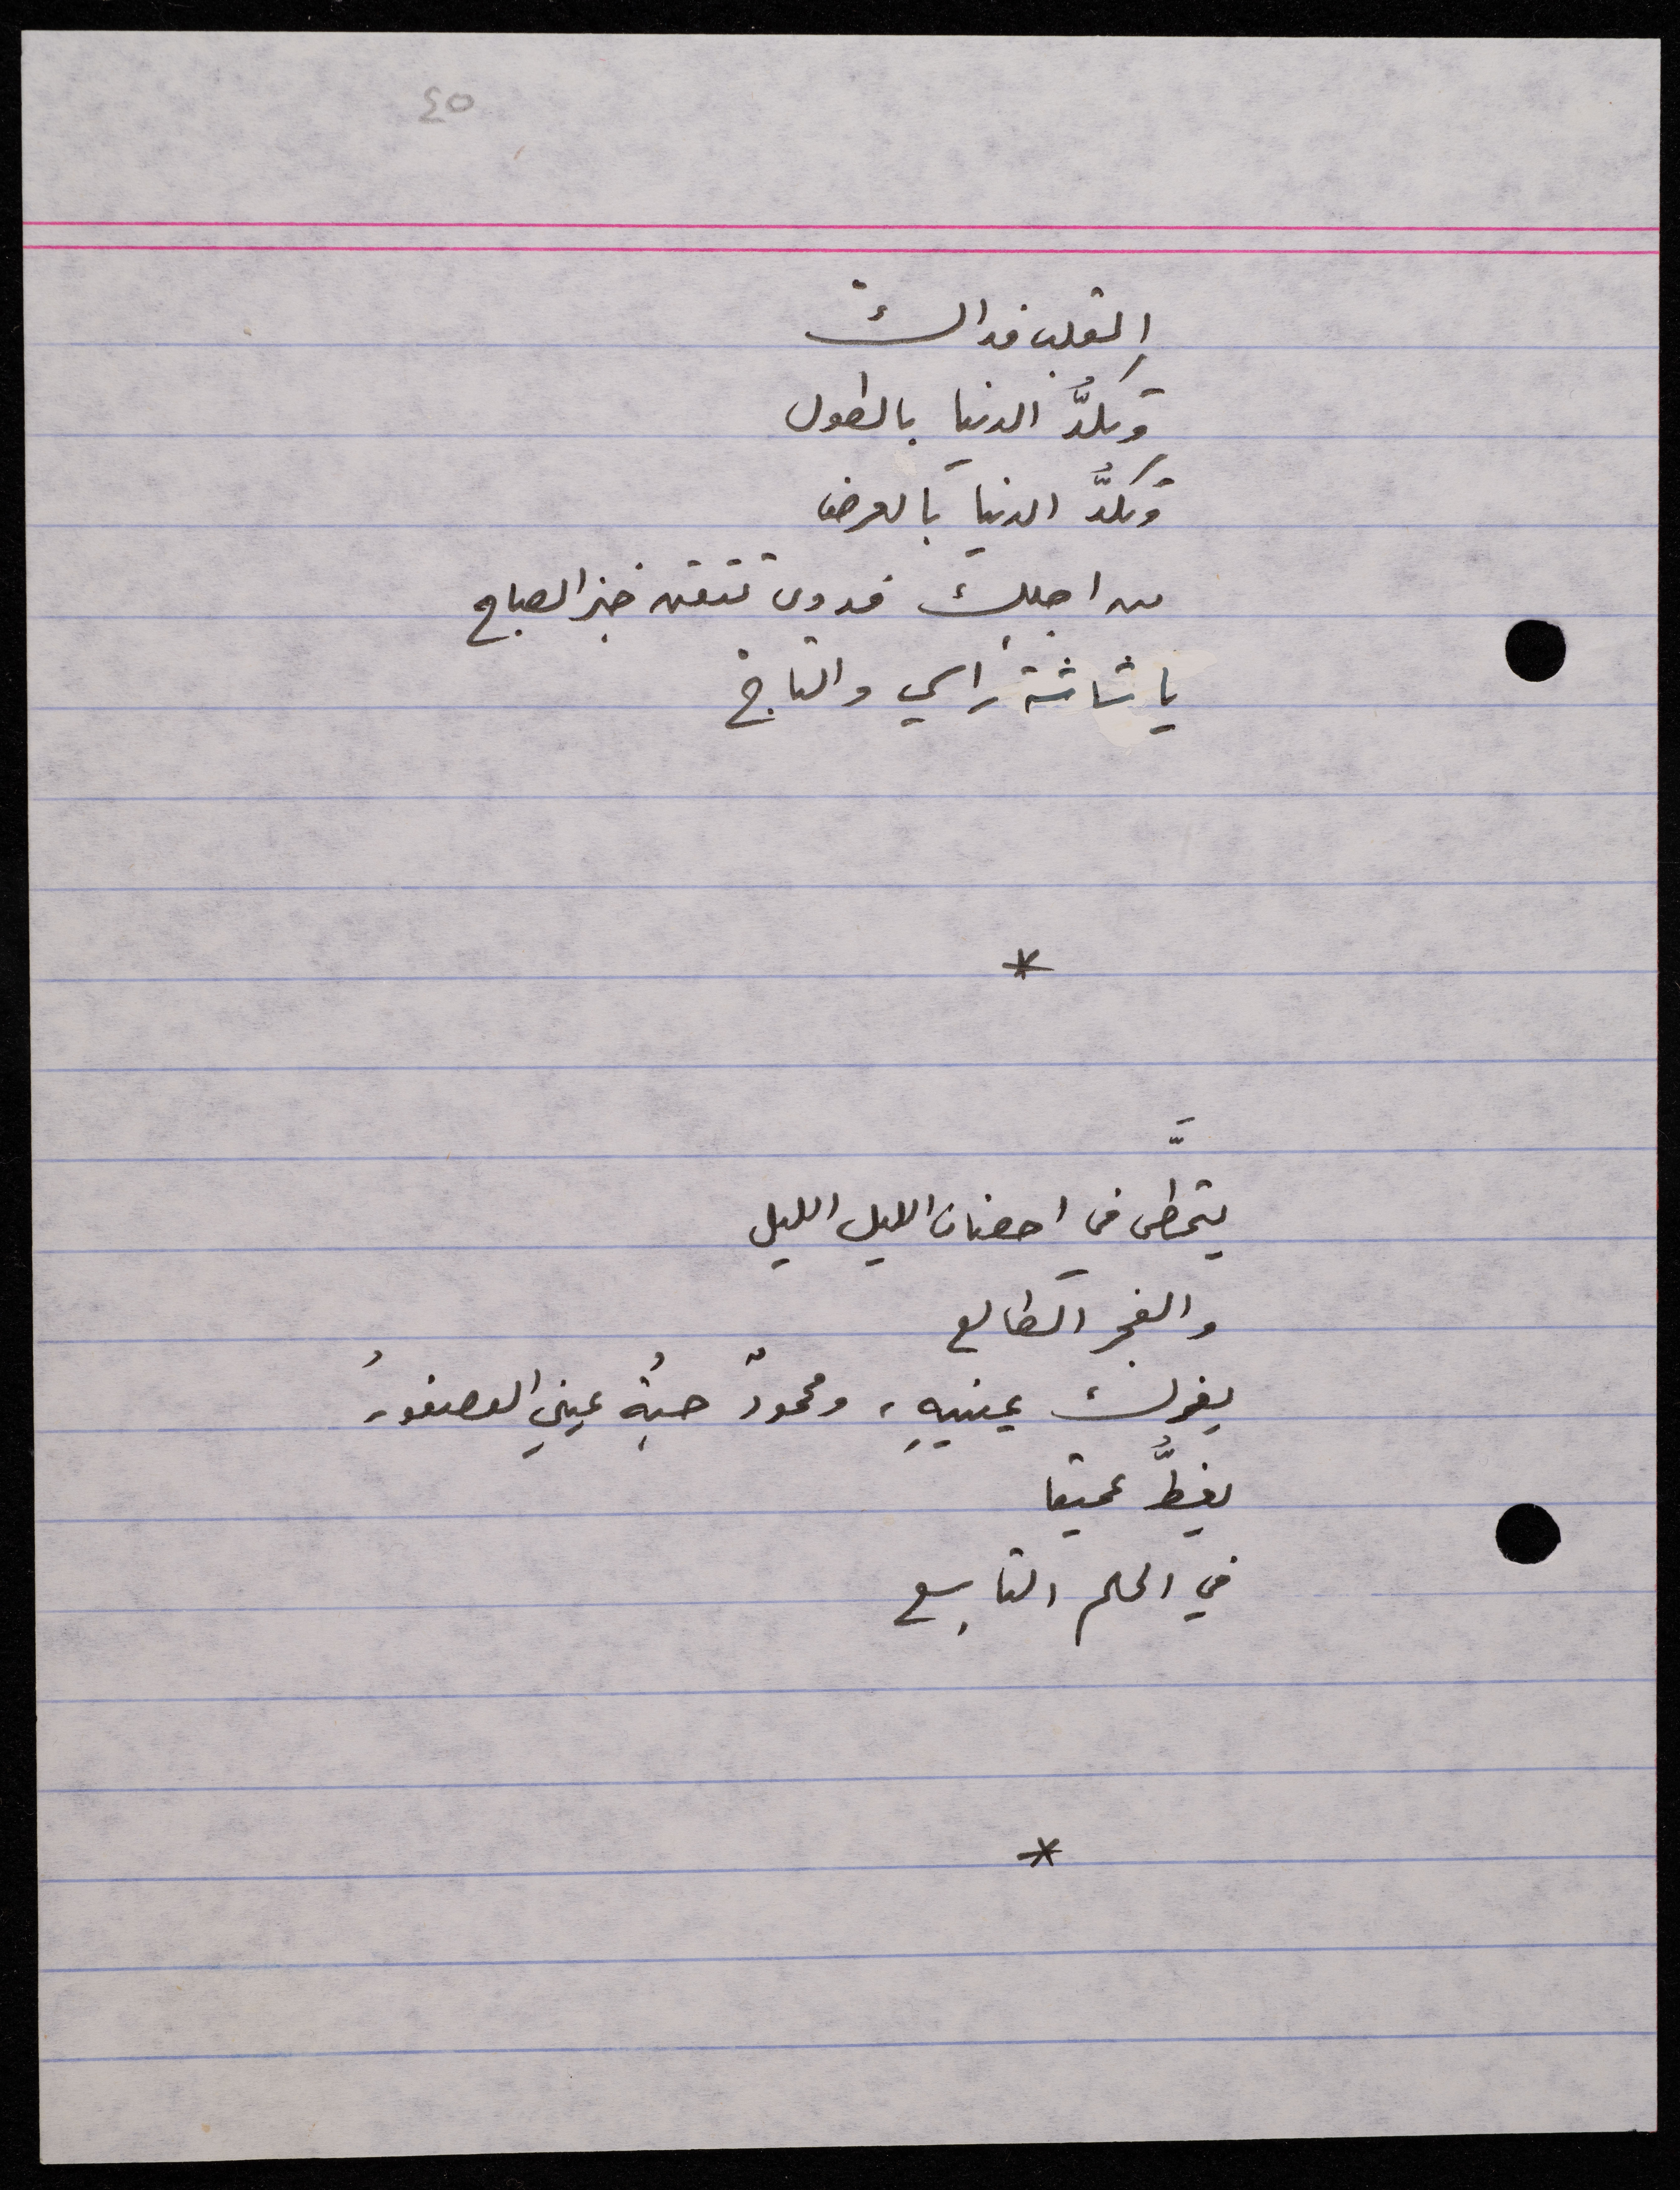 ٤٥
القلب فداك
وتكدُّ الدنيا بالطول
وتكدُّ الدنيا بالعرض
من اجلك فدوى تتقن خبز الصاج
يا شاشة راسي والتاج
*
يتمطَّى في احضان الليل الليل
والفجر الطالع
يفرك عينيهِ، ومحمودٌ حبةُ عيني العصفورُ
يغطُّ عميقا
في الحلم التاسع
*